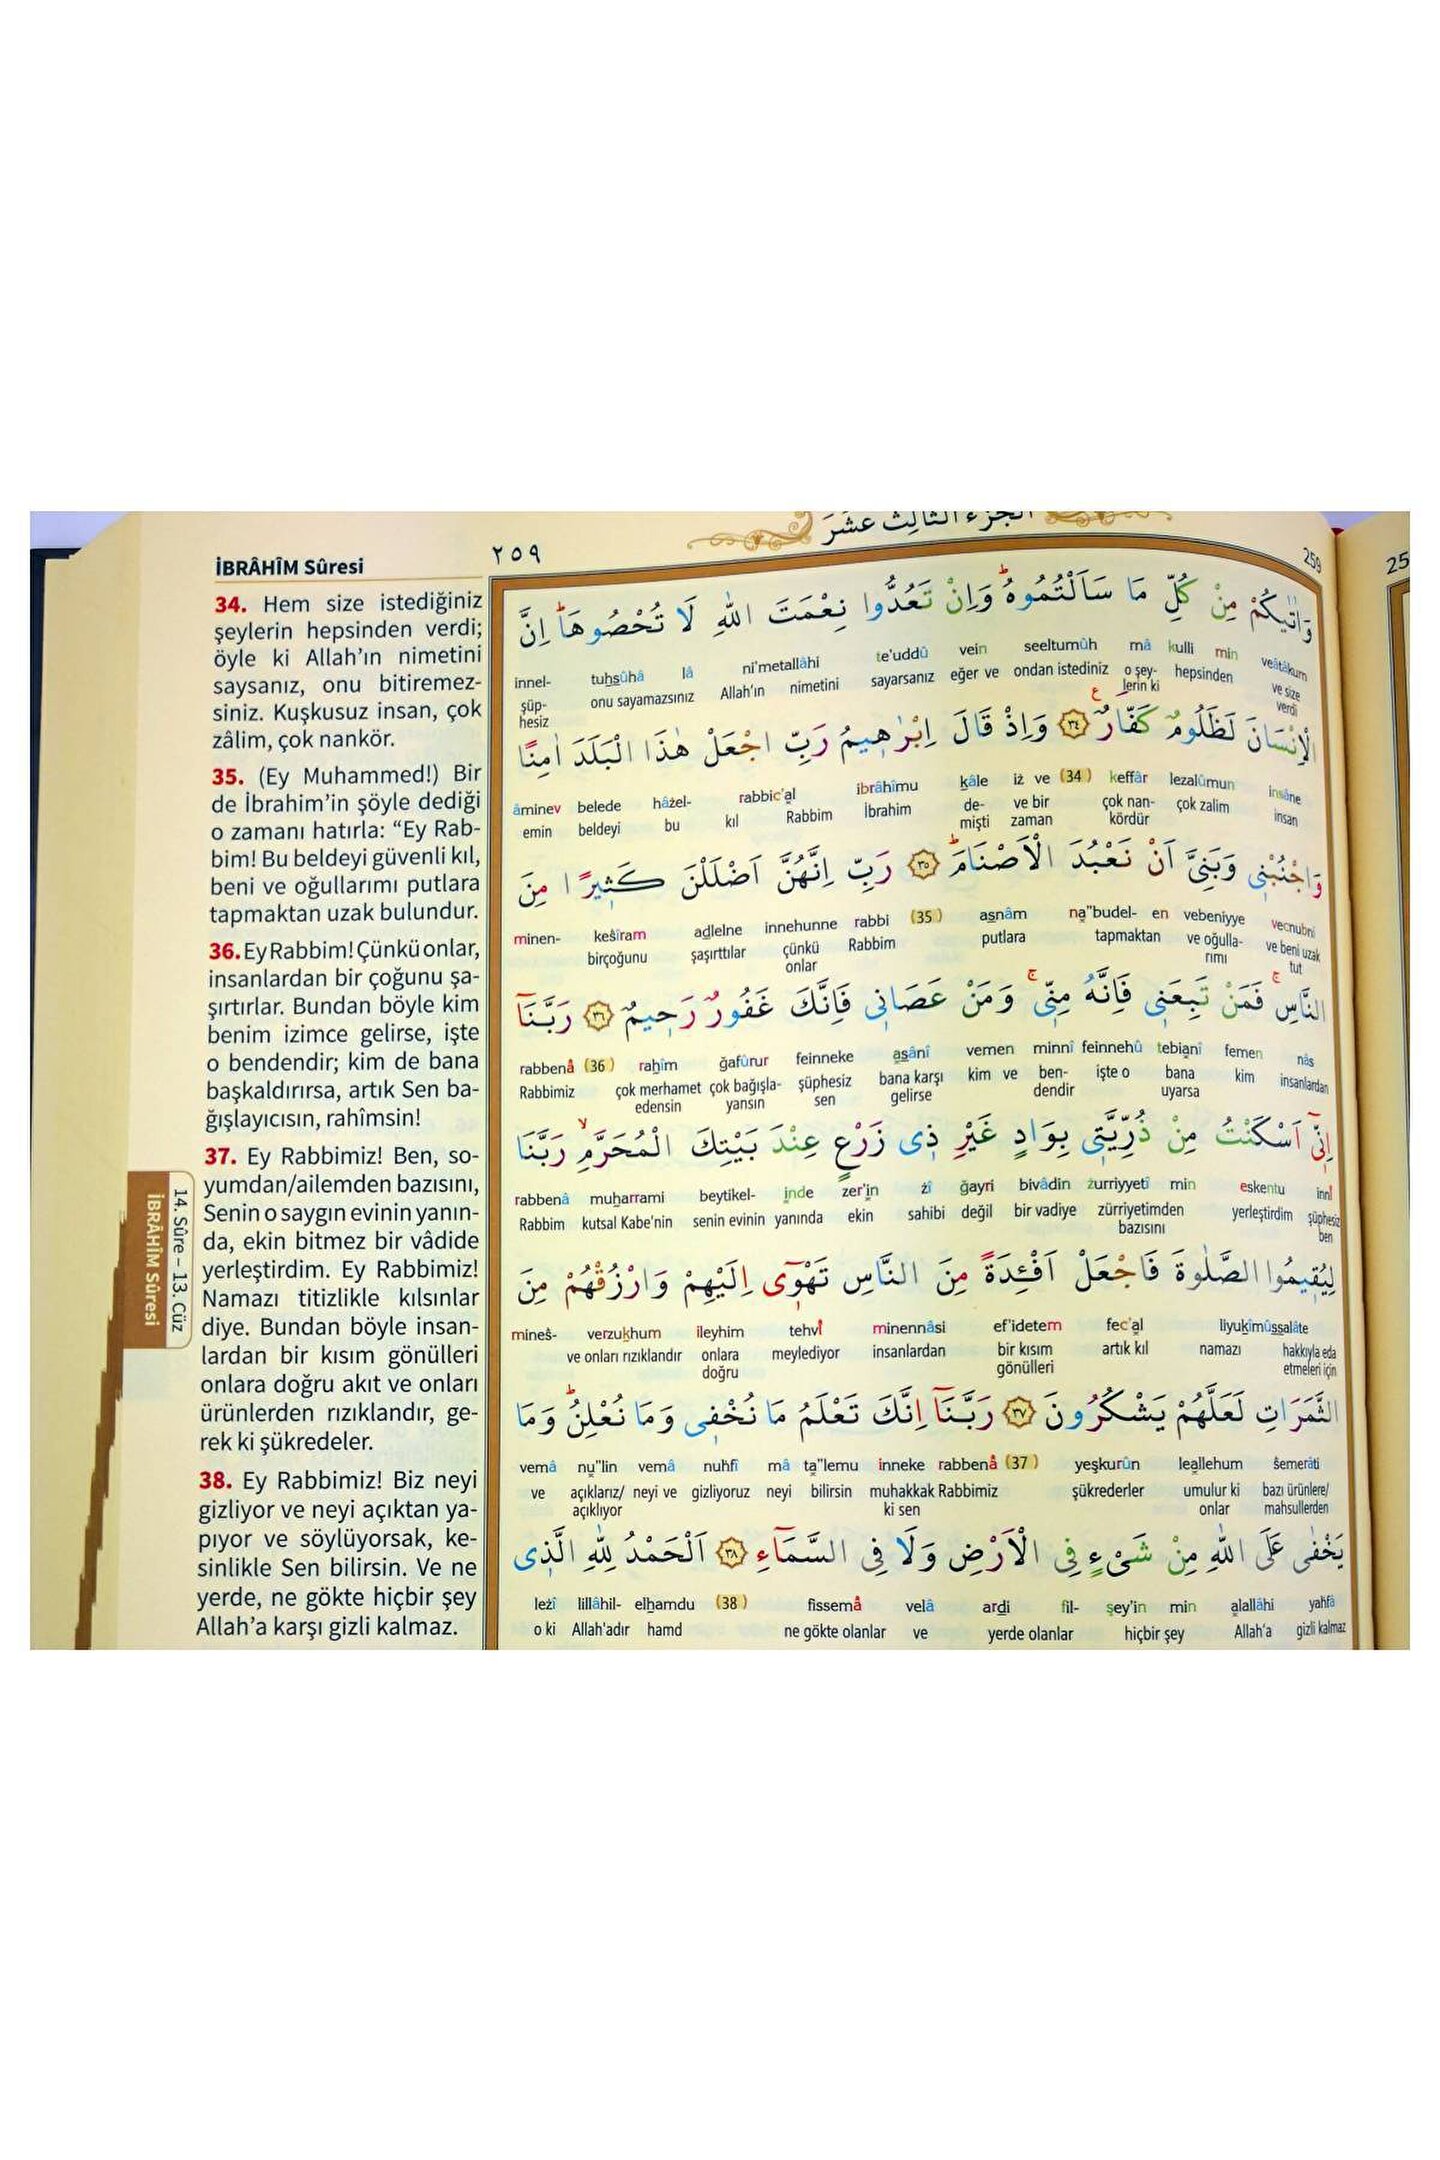 الجزء الثالث عشر
259
٢٥٩
25
İBRÂHÎM Sûresi
34. Hem size istediğiniz
şeylerin hepsinden verdi;
öyle ki Allah’ın nimetini
saysanız, onu bitiremez-
siniz. Kuşkusuz insan, çok
zâlim, çok nankör.
35. (Ey Muhammed!) Bir
de İbrahim’in şöyle dediği
o zamanı hatırla: “Ey Rab-
bim! Bu beldeyi güvenli kıl,
beni ve oğullarımı putlara
tapmaktan uzak bulundur.
36. Ey Rabbim! Çünkü onlar,
insanlardan bir çoğunu şa-
şırtırlar. Bundan böyle kim
benim izimce gelirse, işte
o bendendir; kim de bana
başkaldırırsa, artık Sen ba-
ğışlayıcısın, rahîmsin!
37. Ey Rabbimiz! Ben, so-
yumdan/ailemden bazısını,
Senin o saygın evinin yanın-
da, ekin bitmez bir vâdide
yerleştirdim. Ey Rabbimiz!
Namazı titizlikle kılsınlar
diye. Bundan böyle insan-
lardan bir kısım gönülleri
onlara doğru akıt ve onları
ürünlerden rızıklandır, ge-
rek ki şükredeler.
38. Ey Rabbimiz! Biz neyi
gizliyor ve neyi açıktan ya-
pıyor ve söylüyorsak, ke-
sinlikle Sen bilirsin. Ve ne
yerde, ne gökte hiçbir şey
Allah’a karşı gizli kalmaz.
14. Sûre – 13. Cüz
İBRÂHÎM Sûresi
وَاٰتٰيكُمْ مِنْ كُلِّ مَا سَاَلْتُمُوهُۜ وَاِنْ تَعُدُّوا نِعْمَتَ اللّٰهِ لَا تُحْصُوهَاۜ اِنَّ
innel- tuhsûhâ lâ ni’metallâhi te’uddû vein seeltumûh mâ kulli min veâtâkum
şüp- onu sayamazsınız Allah’ın nimetini sayarsanız eğer ve ondan istediniz o şey- hepsinden ve size
hesiz lerin ki verdi
الْاِنْسَانَ لَظَلُومٌ كَفَّارٌ۟ ﴿٣٤﴾ وَاِذْ قَالَ اِبْرٰه۪يمُ رَبِّ اجْعَلْ هٰذَا الْبَلَدَ اٰمِنًا
âminev belede hâżel- rabbic’al ibrâhîmu kâle iż ve (34) keffâr lezalûmun insâne
emin beldeyi bu kıl Rabbim İbrahim de- ve bir çok nan- çok zalim insan
mişti zaman kördür
وَاجْنُبْن۪ي وَبَنِيَّ اَنْ نَعْبُدَ الْاَصْنَامَۜ ﴿٣٥﴾ رَبِّ اِنَّهُنَّ اَضْلَلْنَ كَث۪يرًا مِنَ
minen- keśîram adlelne innehunne rabbi (35) asnâm na”budel- en vebeniyye vecnubnî
birçoğunu şaşırttılar çünkü Rabbim putlara tapmaktan ve oğulla- ve beni uzak
onlar rımı tut
النَّاسِۚ فَمَنْ تَبِعَن۪ي فَاِنَّهُ مِنّ۪يۚ وَمَنْ عَصَان۪ي فَاِنَّكَ غَفُورٌ رَح۪يمٌ ﴿٣٦﴾ رَبَّنَٓا
rabbenâ (36) rahîm ğafûrur feinneke asânî vemen minnî feinnehû tebianî femen nâs
Rabbimiz çok merhamet çok bağışla- şüphesiz bana karşı kim ve ben- işte o bana kim insanlardan
edensin yansın sen gelirse dendir uyarsa
اِنّ۪ٓي اَسْكَنْتُ مِنْ ذُرِّيَّت۪ي بِوَادٍ غَيْرِ ذ۪ي زَرْعٍ عِنْدَ بَيْتِكَ الْمُحَرَّمِۙ رَبَّنَا
rabbenâ muharrami beytikel- inde zer’in żî ğayri bivâdin żurriyyetî min eskentu innî
Rabbim kutsal Kabe’nin senin evinin yanında ekin sahibi değil bir vadiye zürriyetimden yerleştirdim şüphesiz
bazısını ben
لِيُق۪يمُوا الصَّلٰوةَ فَاجْعَلْ اَفْـِٔدَةً مِنَ النَّاسِ تَهْو۪ٓي اِلَيْهِمْ وَارْزُقْهُمْ مِنَ
mineś- verzukhum ileyhim tehvî minennâsi ef’idetem fec’al liyukîmûssalâte
ve onları rızıklandır onlara meylediyor insanlardan bir kısım artık kıl namazı hakkıyla eda
doğru gönülleri etmeleri için
الثَّمَرَاتِ لَعَلَّهُمْ يَشْكُرُونَ ﴿٣٧﴾ رَبَّنَٓا اِنَّكَ تَعْلَمُ مَا نُخْف۪ي وَمَا نُعْلِنُۜ وَمَا
vemâ nu”lin vemâ nuhfî mâ ta”lemu inneke rabbenâ (37) yeşkurûn leallehum śemerâti
ve açıklarız/ neyi ve gizliyoruz neyi bilirsin muhakkak Rabbimiz şükrederler umulur ki bazı ürünlere/
açıklıyor ki sen onlar mahsullerden
يَخْفٰى عَلَى اللّٰهِ مِنْ شَيْءٍ فِي الْاَرْضِ وَلَا فِي السَّمَٓاءِ ﴿٣٨﴾ اَلْحَمْدُ لِلّٰهِ الَّذ۪ي
leżî lillâhil- elhamdu (38) fissemâ velâ ardi fil- şey’in min alallâhi yahfâ
o ki Allah’adır hamd ne gökte olanlar ve yerde olanlar hiçbir şey Allah’a gizli kalmaz